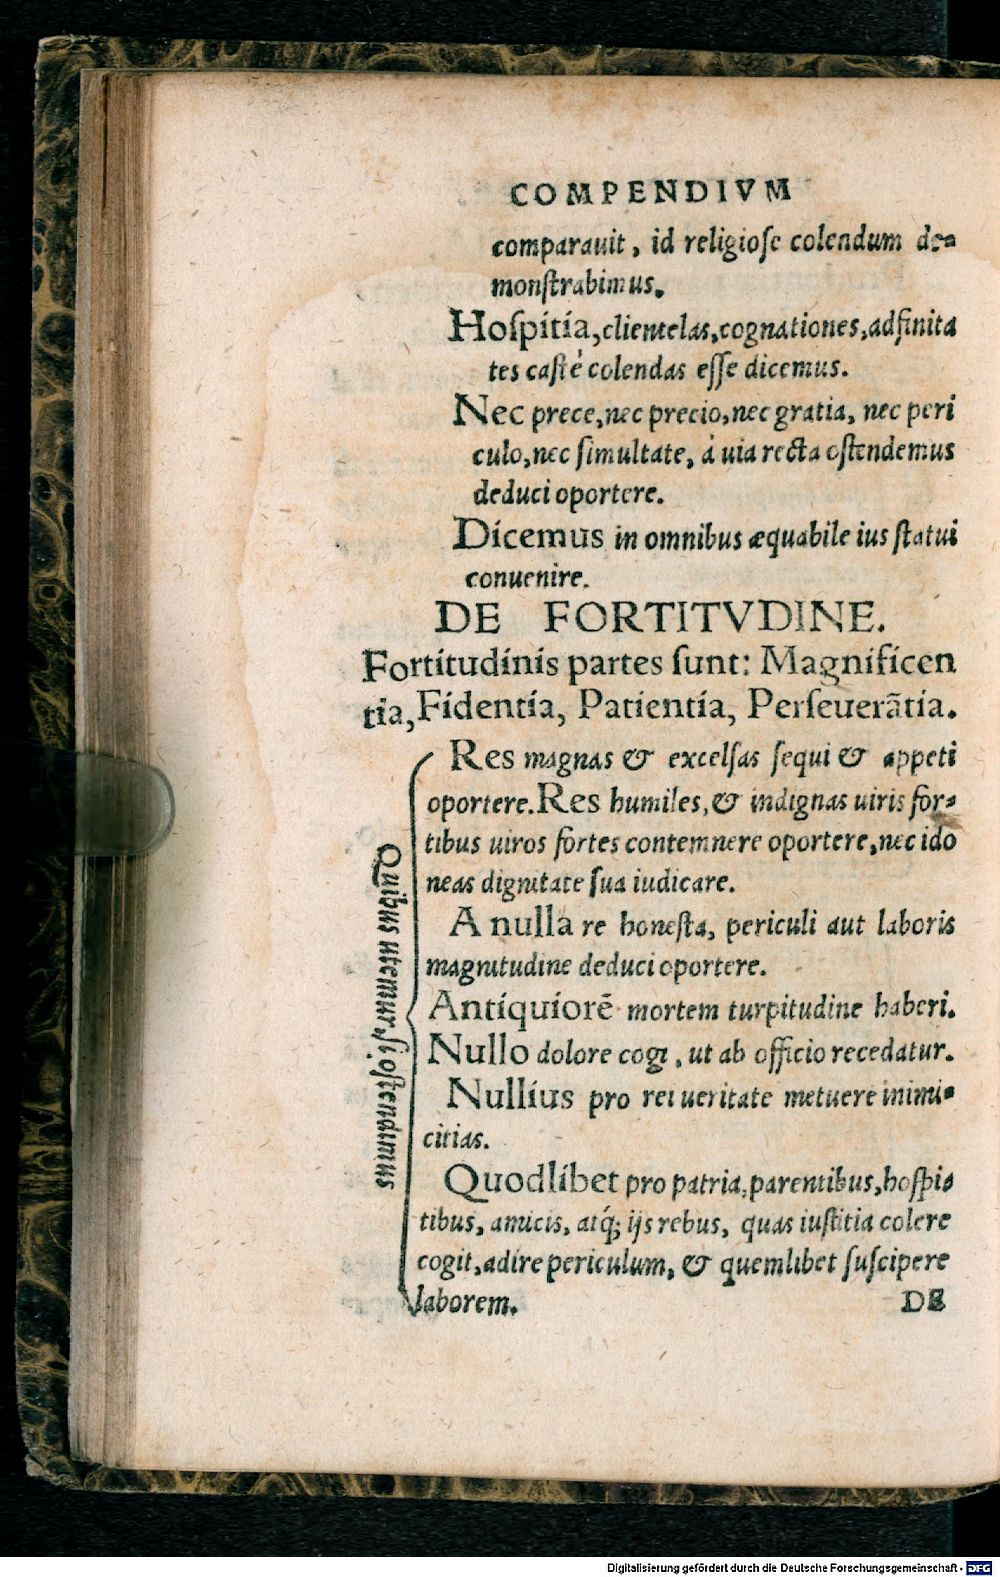 COMPENDIVM
comparauit, id religiose colendum de-
monſtrabimus.
Hoſpitia, clientelas, cognationes, adfinita
tes caſtè colendas eſſe dicemus.
Nec prece, nec precio, nec gratia, nec peri
culo, nec ſimultate, à uia recta oſtendemus
deduci oportere.
Dicemus in omnibus æquabile ius ſtatui
conuenire.
DE FORTITVDINE.
Fortitudinis partes ſunt: Magnificen
tia, Fidentia, Patientia, Perſeuerãtia.
Quibus utemur, ſi oſtendimus
Res magnas & excelſas ſequi & appeti
oportere. Res humiles, & indignas uiris for-
tibus uiros fortes contemnere oportere, nec ido
neas dignitate ſua iudicare.
A nulla re honeſta, periculi aut laboris
magnitudine deduci oportere.
Antiquiorẽ mortem turpitudine haberi.
Nullo dolore cogi, ut ab officio recedatur.
Nullius pro rei ueritate metuere inimi-
citias.
Quodlibet pro patria, parentibus, hoſpi-
tibus, amicis, atq́; ijs rebus, quas iuſtitia colere
cogit, adire periculum, & quemlibet ſuſcipere
laborem. DE
Digitalisierung gefördert durch die Deutsche Forschungsgemeinschaft - DFG